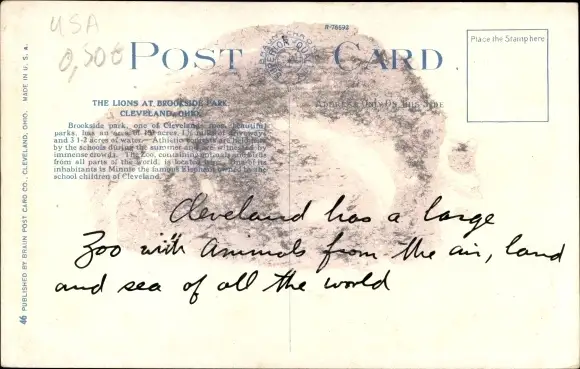 USA
0,50€
R-76593
POST CARD
Place the Stamp here
THE LIONS AT BROOKSIDE PARK
CLEVELAND, OHIO.
Address Only On This Side
Brookside park, one of Cleveland's most beautiful
parks, has an area of acres, miles of driveways
and 3 1-2 acres of water. Athletic contests are held here
by the schools during the summer and are witnessed by
immense crowds. The Zoo, containing animals and birds
from all parts of the world, is located here. One of its
inhabitants is Minnie the famous Elephant owned by the
school children of Cleveland.
Cleveland has a large
Zoo with animals from the air, land
and sea of all the world
46 PUBLISHED BY BRAUN POST CARD CO., CLEVELAND, OHIO. MADE IN U. S. A.